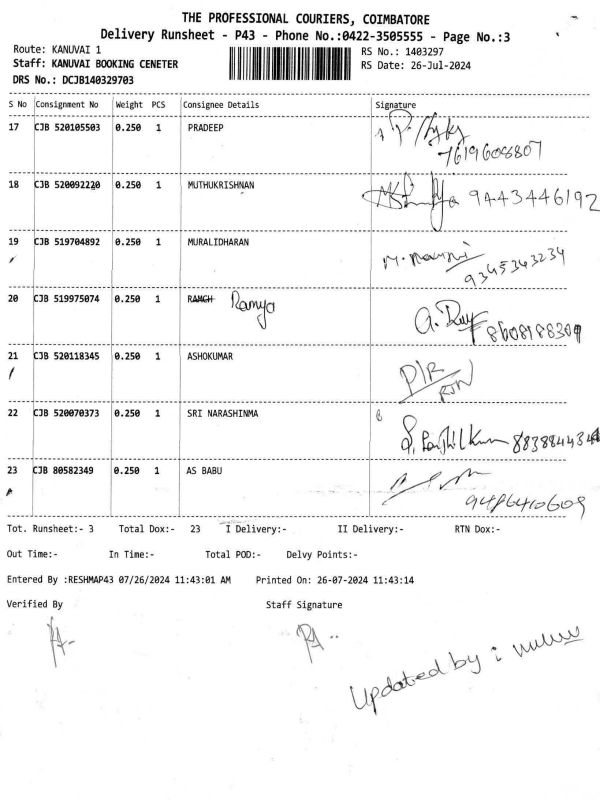 THE PROFESSIONAL COURIERS, COIMBATORE
Delivery Runsheet - P43 - Phone No.:0422-3505555 - Page No.:3
Route: KANUVAI 1 RS No.: 1403297
Staff: KANUVAI BOOKING CENETER RS Date: 26-Jul-2024
DRS No.: DCJB140329703
S No Consignment No Weight PCS Consignee Details Signature
17 CJB 520105503 0.250 1 PRADEEP
7619608807
18 CJB 520092220 0.250 1 MUTHUKRISHNAN 9443446192
19 CJB 519704892 0.250 1 MURALIDHARAN
9345343234
20 CJB 519975074 0.250 1 RAMCH Ramya
8608188309
21 CJB 520118345 0.250 1 ASHOKUMAR D/R
RTN
22 CJB 520070373 0.250 1 SRI NARASHINMA
23 CJB 80582349 0.250 1 AS BABU
9486410609
Tot. Runsheet:- 3 Total Dox:- 23 I Delivery:- II Delivery:- RTN Dox:-
Out Time:- In Time:- Total POD:- Delvy Points:-
Entered By :RESHMAP43 07/26/2024 11:43:01 AM Printed On: 26-07-2024 11:43:14
Verified By Staff Signature
Updated by :